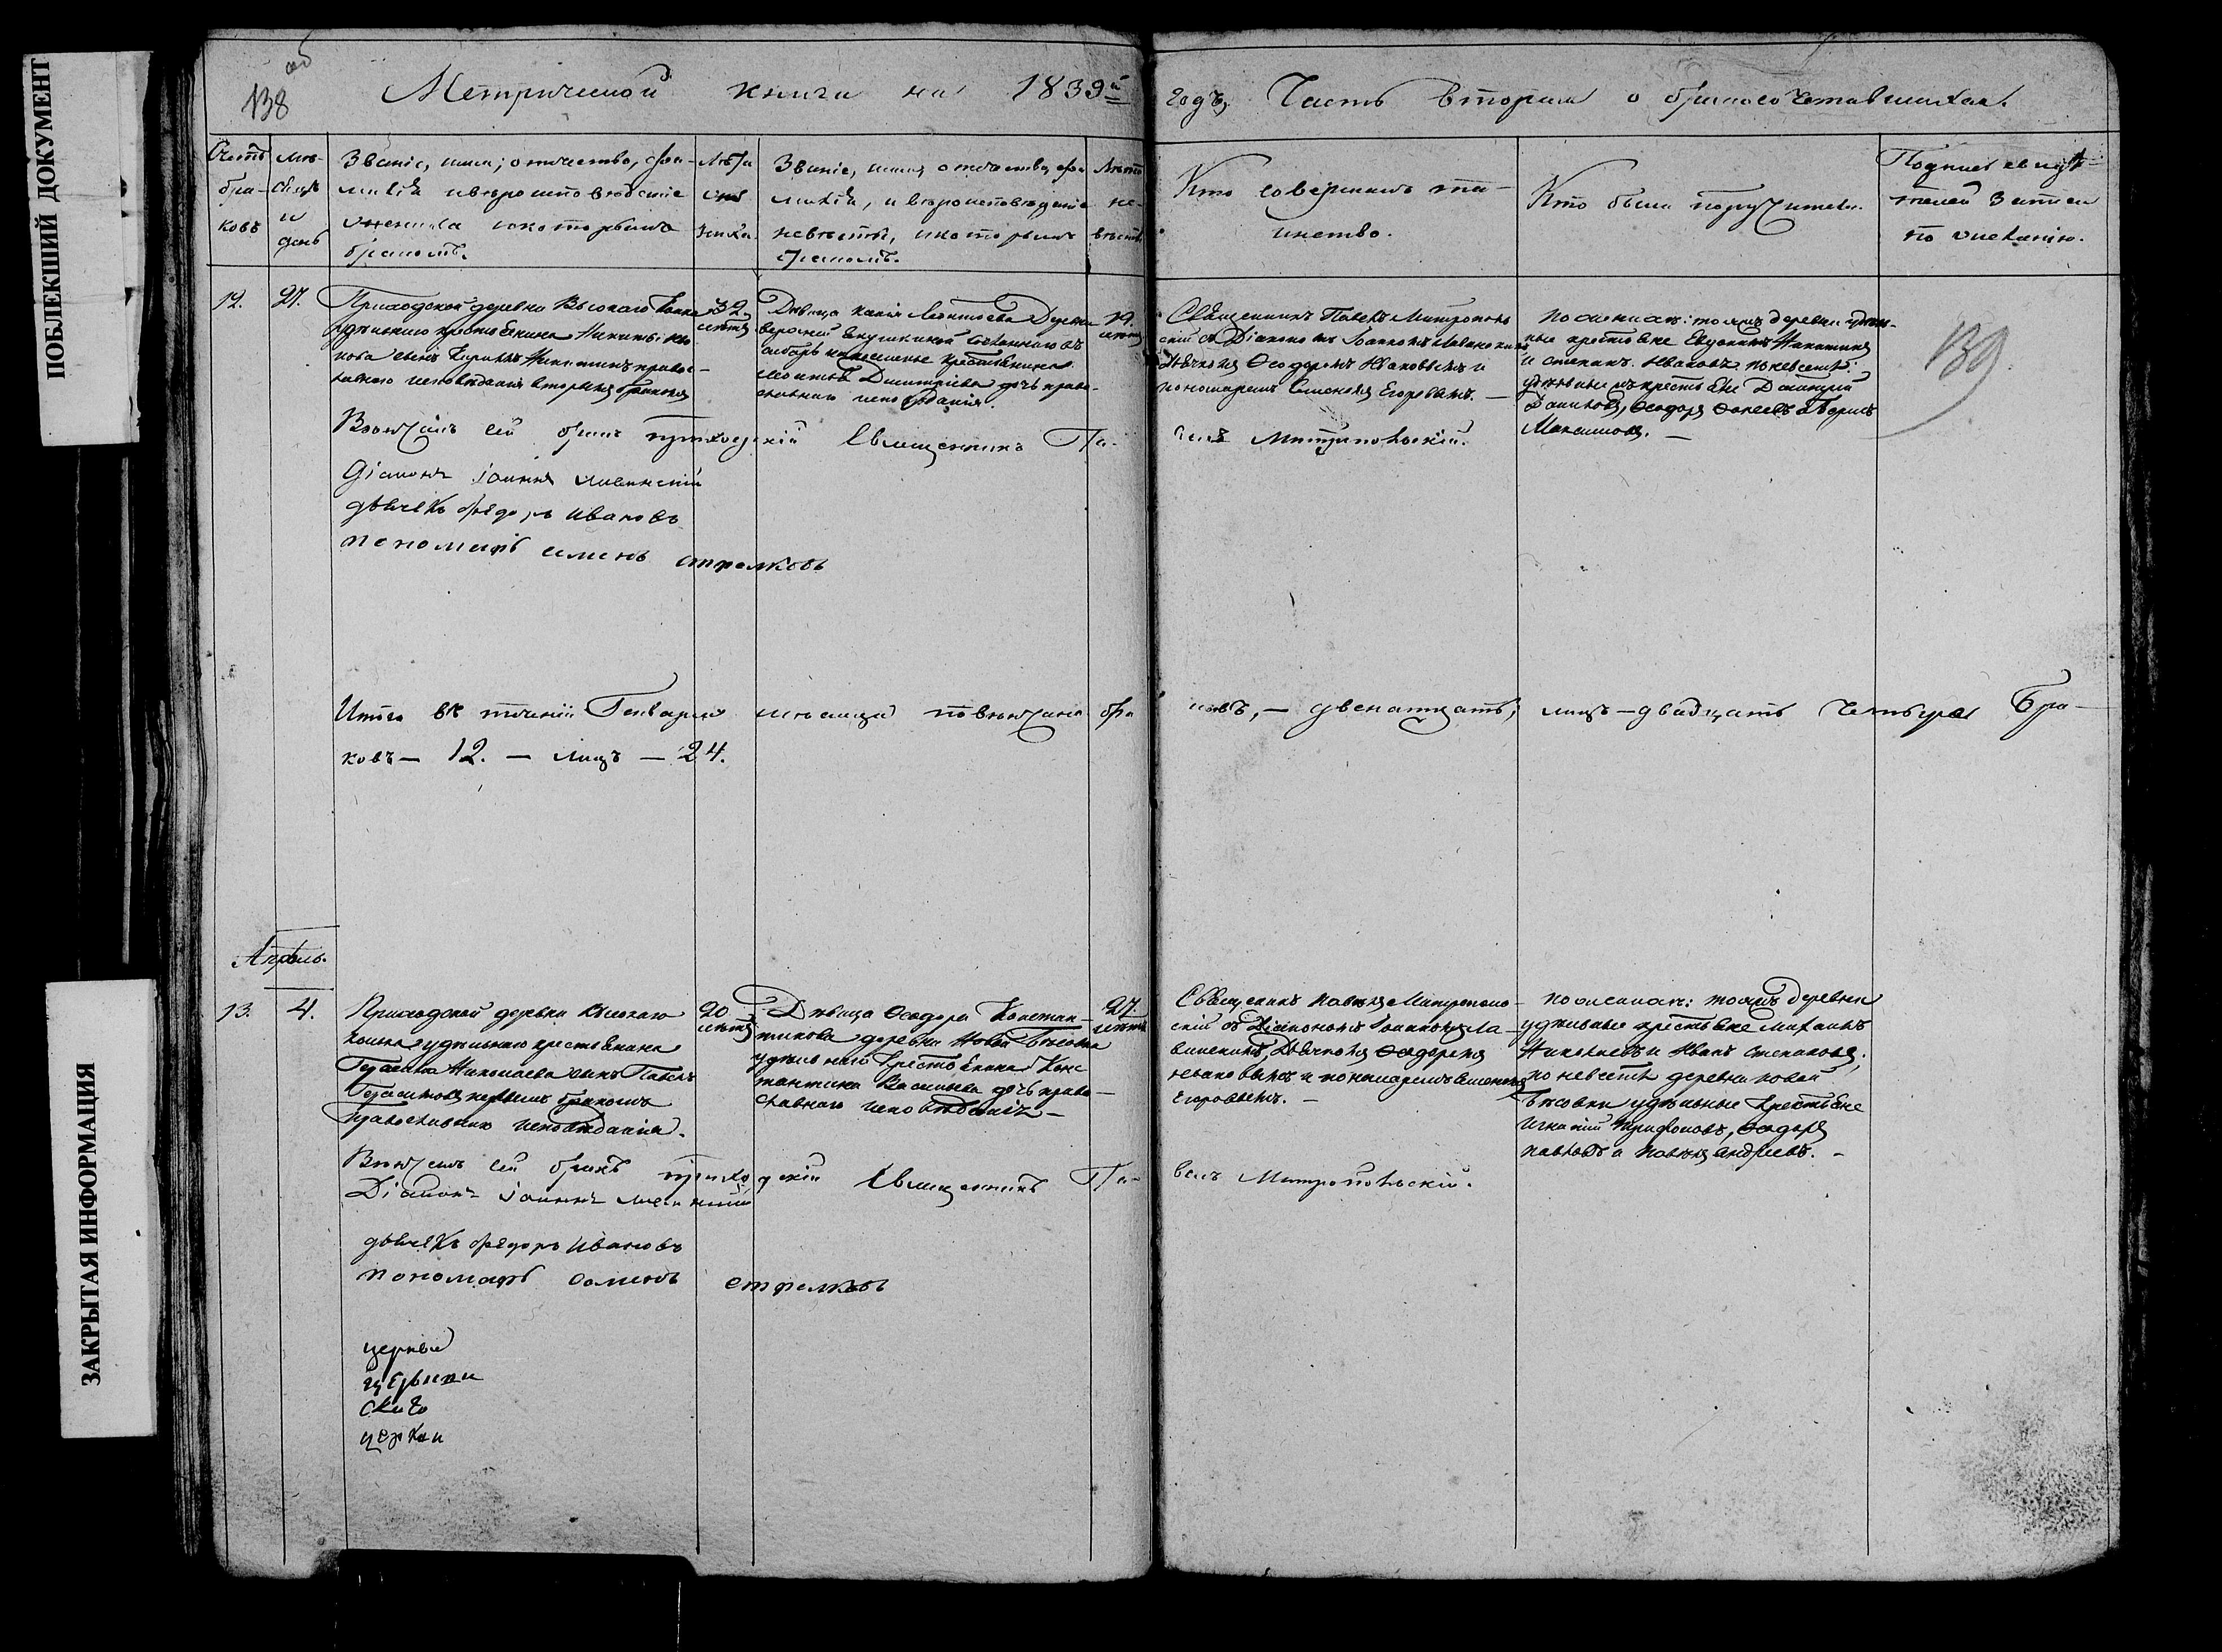 ПОБЛЕКШИЙ ДОКУМЕНТ
ЗАКРЫТАЯ ИНФОРМАЦИЯ
138 об
Метрической книги на 1839й
годъ, Часть вторая о бракосочетавшихся.
Счетъ бра-ковъ
Мѣ-сяцъ и день
Званіе, имя, отчество, фа-
милія и вѣроисповѣданіе
жениха и которымъ
бракомъ.
Лѣта
жениха
Званіе, имя, отчество, фа-
милія, и вѣроисповѣданіе
невѣсты, и которымъ
бракомъ.
Лѣта
не-
вѣсты
Кто совершалъ та-
инство.
Кто были поручители.
Подпись свидѣ-
телей записи
по желанію.
12.
27.
Приходской деревни Высокаго
удѣльнаго крестьянина Никиты
сынъ Никитинъ правос-
лавнаго исповѣданія вторымъ бракомъ
32
лѣтъ
Дѣвица Леонтьева Деревни
крестьянина
Леонтья Димитріева дочь право-
славнаго исповѣданія.
19.
лѣтъ
Священникъ Павелъ Митрополь
скій съ Діакономъ Іоанномъ
Дьячкомъ Ѳеодоромъ Ивановымъ и
пономаремъ Семеномъ Егоровымъ. —
По женихѣ: тояжъ деревни удѣль-
ные крестьяне Никитинъ
и Степанъ Ивановъ, по невѣстѣ:
удѣльные крестьяне Димитрій
Ѳеодоръ и Борисъ
Максимовъ. —
139
Вѣнчалъ сей бракъ приходскій Священникъ Па-
велъ Митропольскій.
Діаконъ Іоаннъ
дьячекъ Федоръ Ивановъ
пономарь Семенъ Стрелковъ
Итого въ теченіи Генваря мѣсяца повѣнчано бра
ковъ, — двенатцать, лицъ — двадцать четыре Бра-
ковъ — 12. — Лицъ — 24.
Апрѣль.
13.
4.
Приходской деревни Высокаго
удѣльнаго крестьянина
Герасима Николаева сынъ Павелъ
Герасимовъ первымъ бракомъ
православнаго исповѣданія.
20
лѣтъ
Дѣвица Ѳеодора Констан-
тинова деревни Новой
удѣльнаго крестьянина Конс
тантина Васильева дочь право-
славнаго исповѣданія —
27
лѣтъ
Священникъ Павелъ Митрополь-
скій съ Діакономъ Іоанномъ Ла-
Дьячкомъ Ѳеодоромъ
Ивановымъ и пономаремъ Семеномъ
Егоровымъ. —
По женихѣ: тояжъ деревни
удѣльные крестьяне Михаилъ
Николаевъ и Иванъ Степановъ,
по невѣстѣ деревни Новой
удѣльные Крестьяне
Игнатій Трифоновъ, Ѳеодоръ
Павловъ и Павелъ Андреевъ. —
Вѣнчалъ сей бракъ приходскій Священникъ Па-
велъ Митропольскій.
Діаконъ Іоаннъ
дьячекъ Федоръ Ивановъ
пономарь Семенъ Стрелковъ